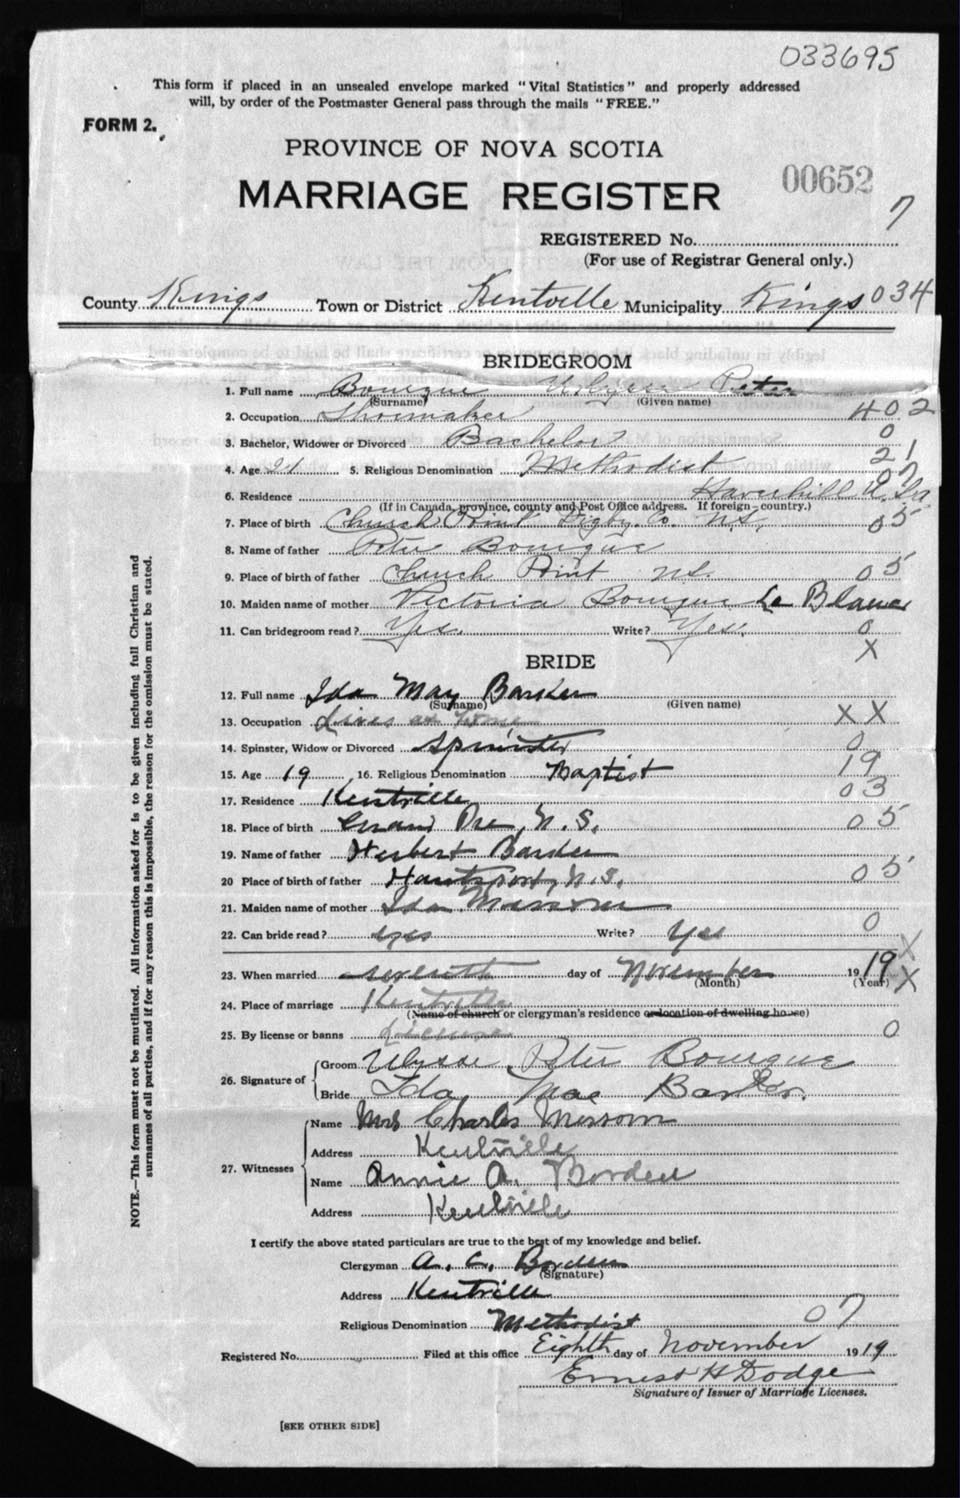 033695
This form if placed in an unsealed envelope marked "Vital Statistics" and properly addressed
will, by order of the Postmaster General pass through the mails "FREE."
FORM 2.
PROVINCE OF NOVA SCOTIA
MARRIAGE REGISTER
00652
7
REGISTERED No.
(For use of Registrar General only.)
County Kings Town or District Kentville Municipality Kings 034
BRIDEGROOM
1. Full name Bourque Peter
(Surname) (Given name)
2. Occupation Shoemaker 402
3. Bachelor, Widower or Divorced Bachelor 0
4. Age 21 5. Religious Denomination Methodist 21
07
6. Residence Haverhill
(If in Canada, province, county and Post Office address. If foreign—country.)
7. Place of birth Church Point Digby Co. N.S. 05
8. Name of father Peter Bourque
9. Place of birth of father Church Point N.S. 05
10. Maiden name of mother Victoria Bourque Le Blanc
11. Can bridegroom read? Yes. Write? Yes. 0
X
BRIDE
12. Full name Ida May Barker
(Surname) (Given name)
13. Occupation Lives at home XX
14. Spinster, Widow or Divorced Spinster 0
15. Age 19 16. Religious Denomination Baptist 19
17. Residence Kentville 03
18. Place of birth Grand Pre, N.S. 05
19. Name of father Herbert
20 Place of birth of father Hantsport, N.S. 05
21. Maiden name of mother Ida
22. Can bride read? yes Write? Yes 0
X
23. When married seventh day of November 1919 X
(Month) (Year)
24. Place of marriage Kentville
(Name of church or clergyman's residence or location of dwelling house)
25. By license or banns License 0
26. Signature of Groom Ulysse Peter Bourque
Bride Ida Mae Barker.
27. Witnesses Name Mrs Charles
Address Kentville
Name Annie A. Borden
Address Kentville
I certify the above stated particulars are true to the best of my knowledge and belief.
Clergyman A. C. Borden
(Signature)
Address Kentville
Religious Denomination Methodist 07
Registered No. Filed at this office Eighth day of November 1919
Ernest H Dodge
Signature of Issuer of Marriage Licenses.
[SEE OTHER SIDE]
NOTE.—This form must not be mutilated. All information asked for is to be given including full Christian and
surnames of all parties, and if for any reason this is impossible, the reason for the omission must be stated.